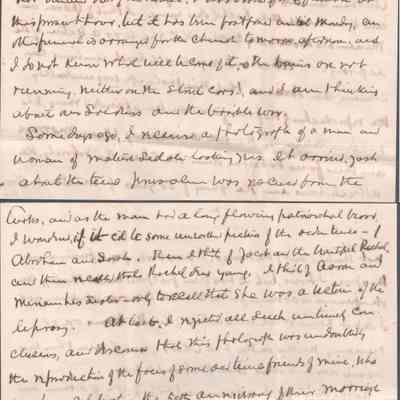 this present hour, but it has been postponed until Monday, an
other funeral is arranged for the church tomorrow afternoon, and
I do not know what will become of it, the trains are not
running, neither on the
about our Soldiers and the horrible war.
Some days ago, I received a photograph of a man and
woman of mature looking It arrived just
about the time Jerusalem was rescued from the
Turks, and as the man had a long flowing patriarchal beard,
I wondered if it c'd be some unearthed picture of the olden times - of
Abraham and Sarah. Then I tho't of Jacob and the beautiful Rachel,
and then that Rachel died young. I tho't of Aaron and
Miriam his sister - only to recall that she was a victim of the
leprosy. At last, I rejected all such untimely con
clusions, and that this photograph was undoubtedly
the reproduction of the faces of some old time friends of mine, who
the anniversary of their marriage